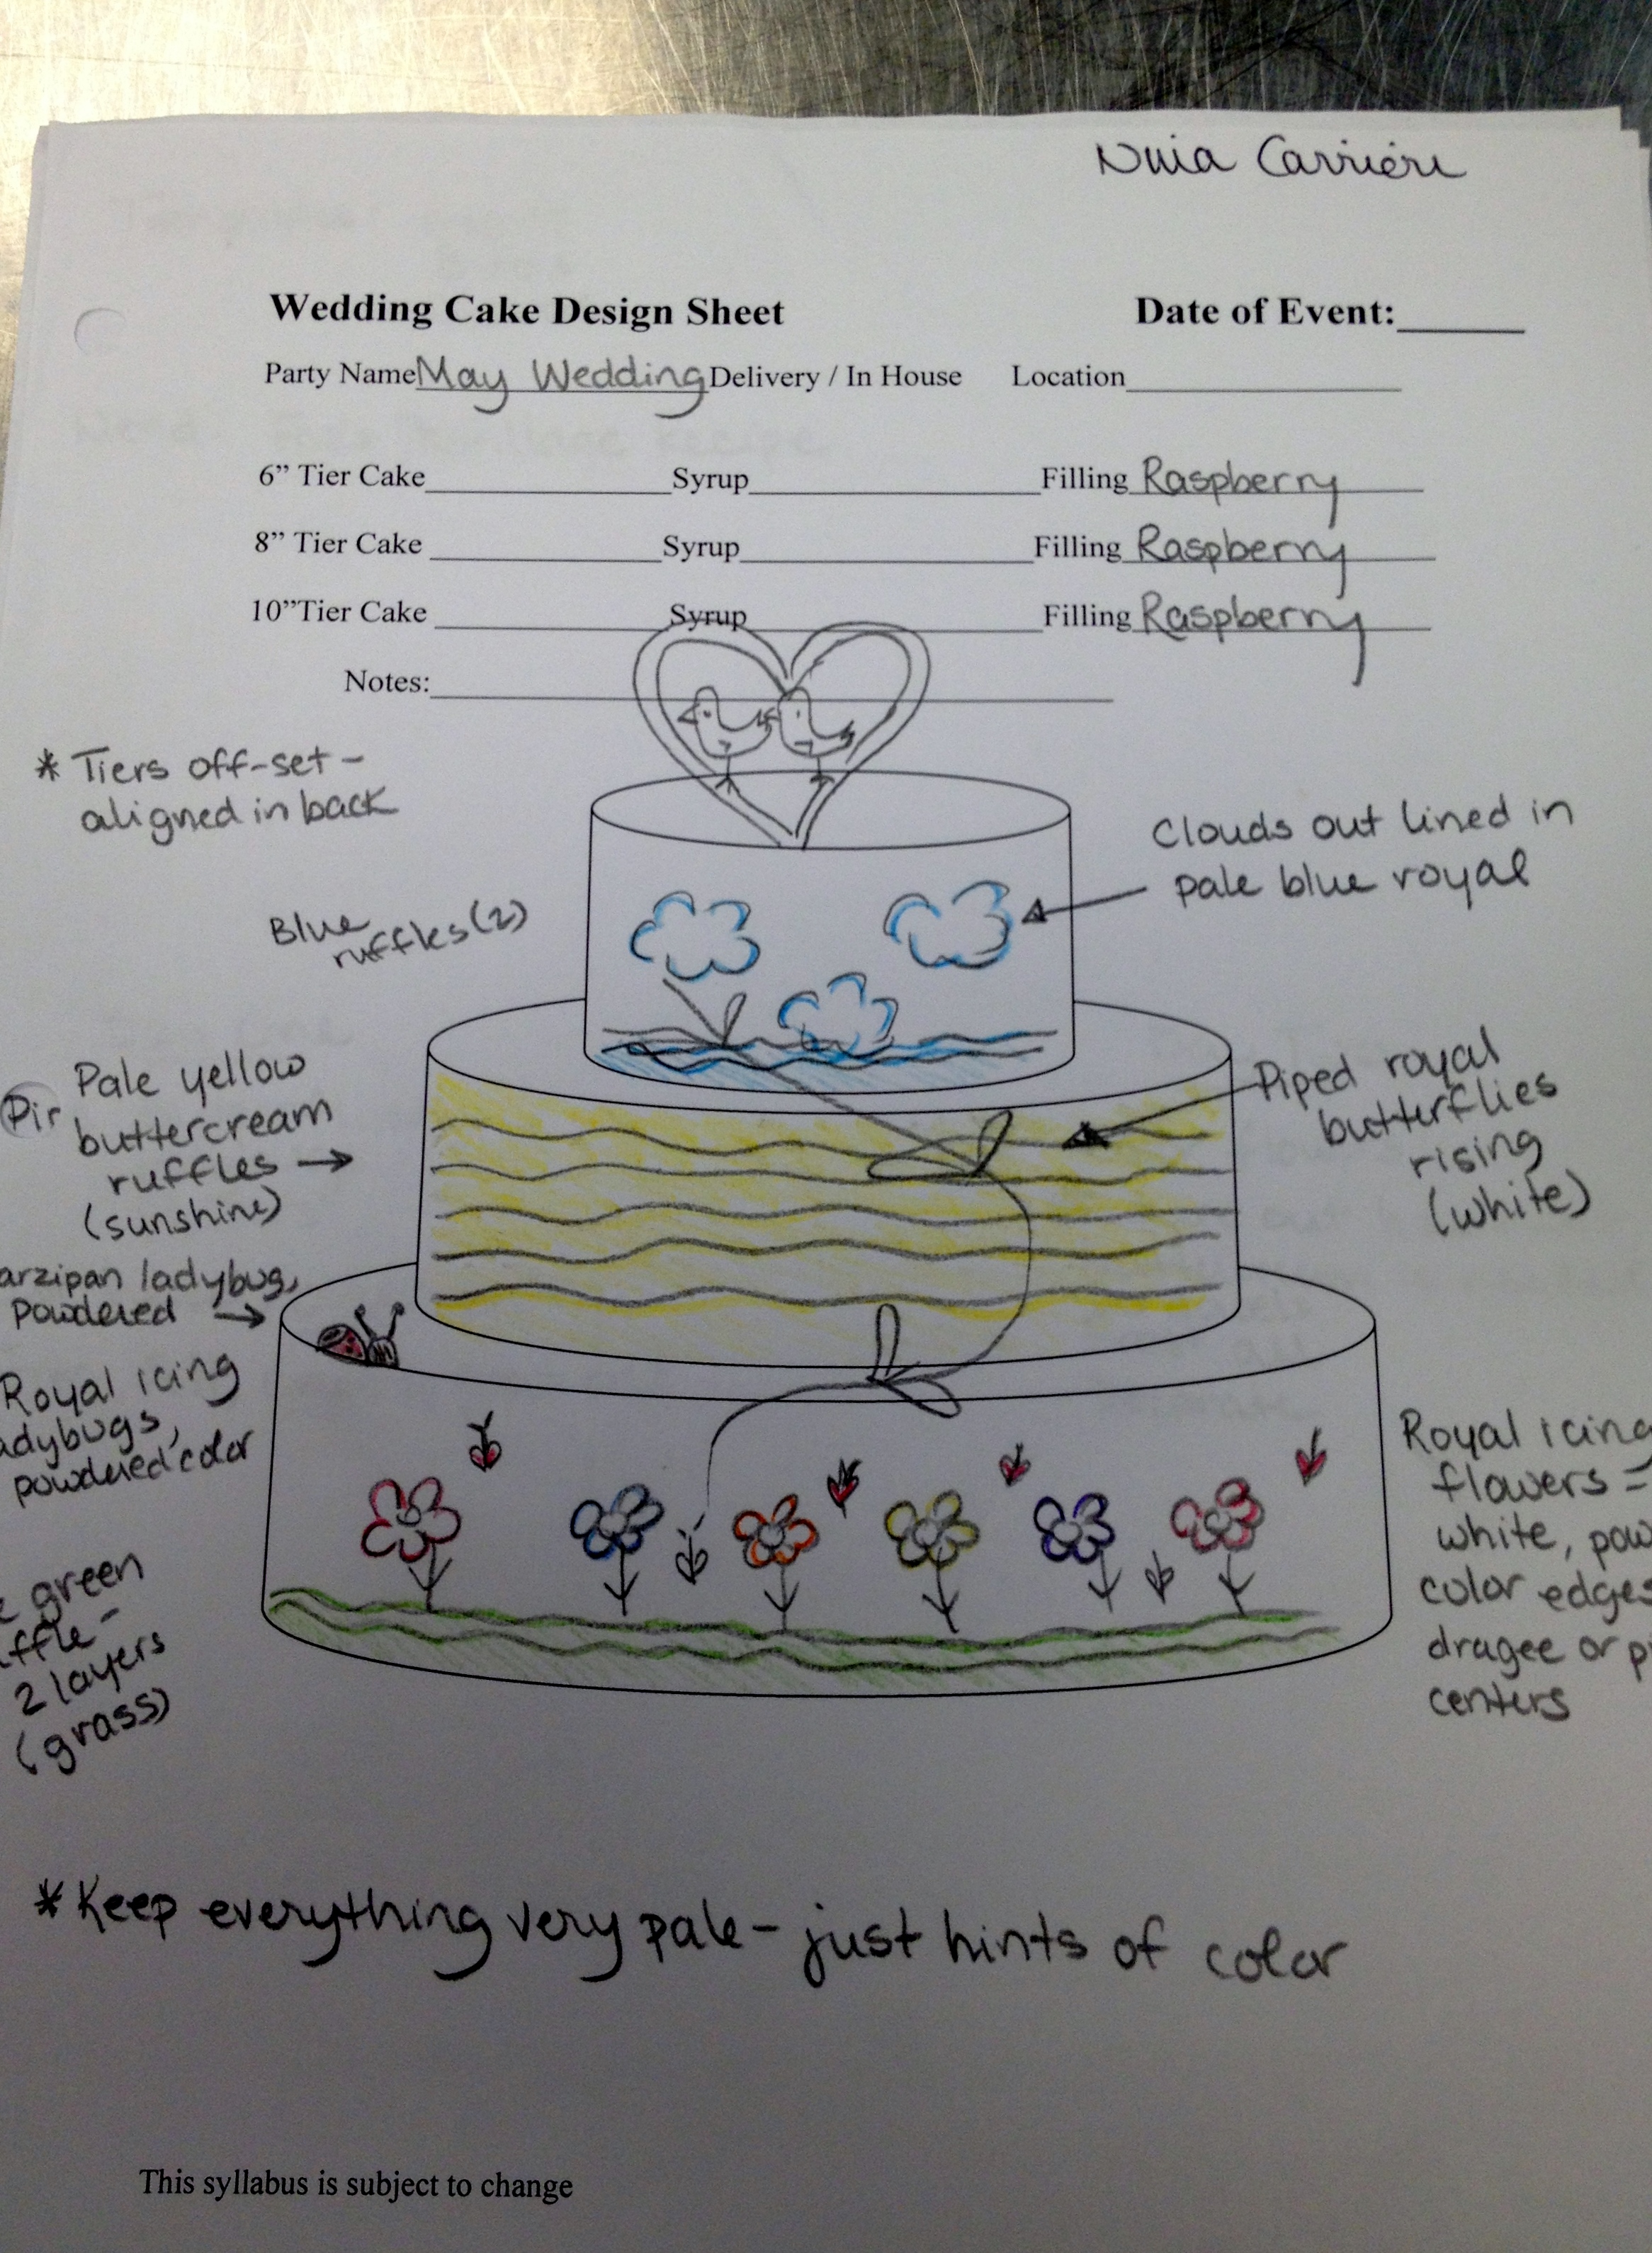 Nina Carrière
Wedding Cake Design Sheet Date of Event:
Party Name May Wedding Delivery / In House Location
6” Tier Cake Syrup Filling Raspberry
8” Tier Cake Syrup Filling Raspberry
10”Tier Cake Syrup Filling Raspberry
Notes:
* Tiers off-set -
aligned in back
Clouds out lined in
pale blue royal
Blue
ruffles (2)
Pale yellow
buttercream
ruffles →
(sunshine)
Piped royal
butterflies
rising
(white)
arzipan ladybug,
powdered →
Royal icing
adybugs,
powdered color
green
ffle -
2 layers
(grass)
Royal icing
flowers =
white, pow
color edges
dragee or p
centers
* Keep everything very pale - just hints of color
This syllabus is subject to change